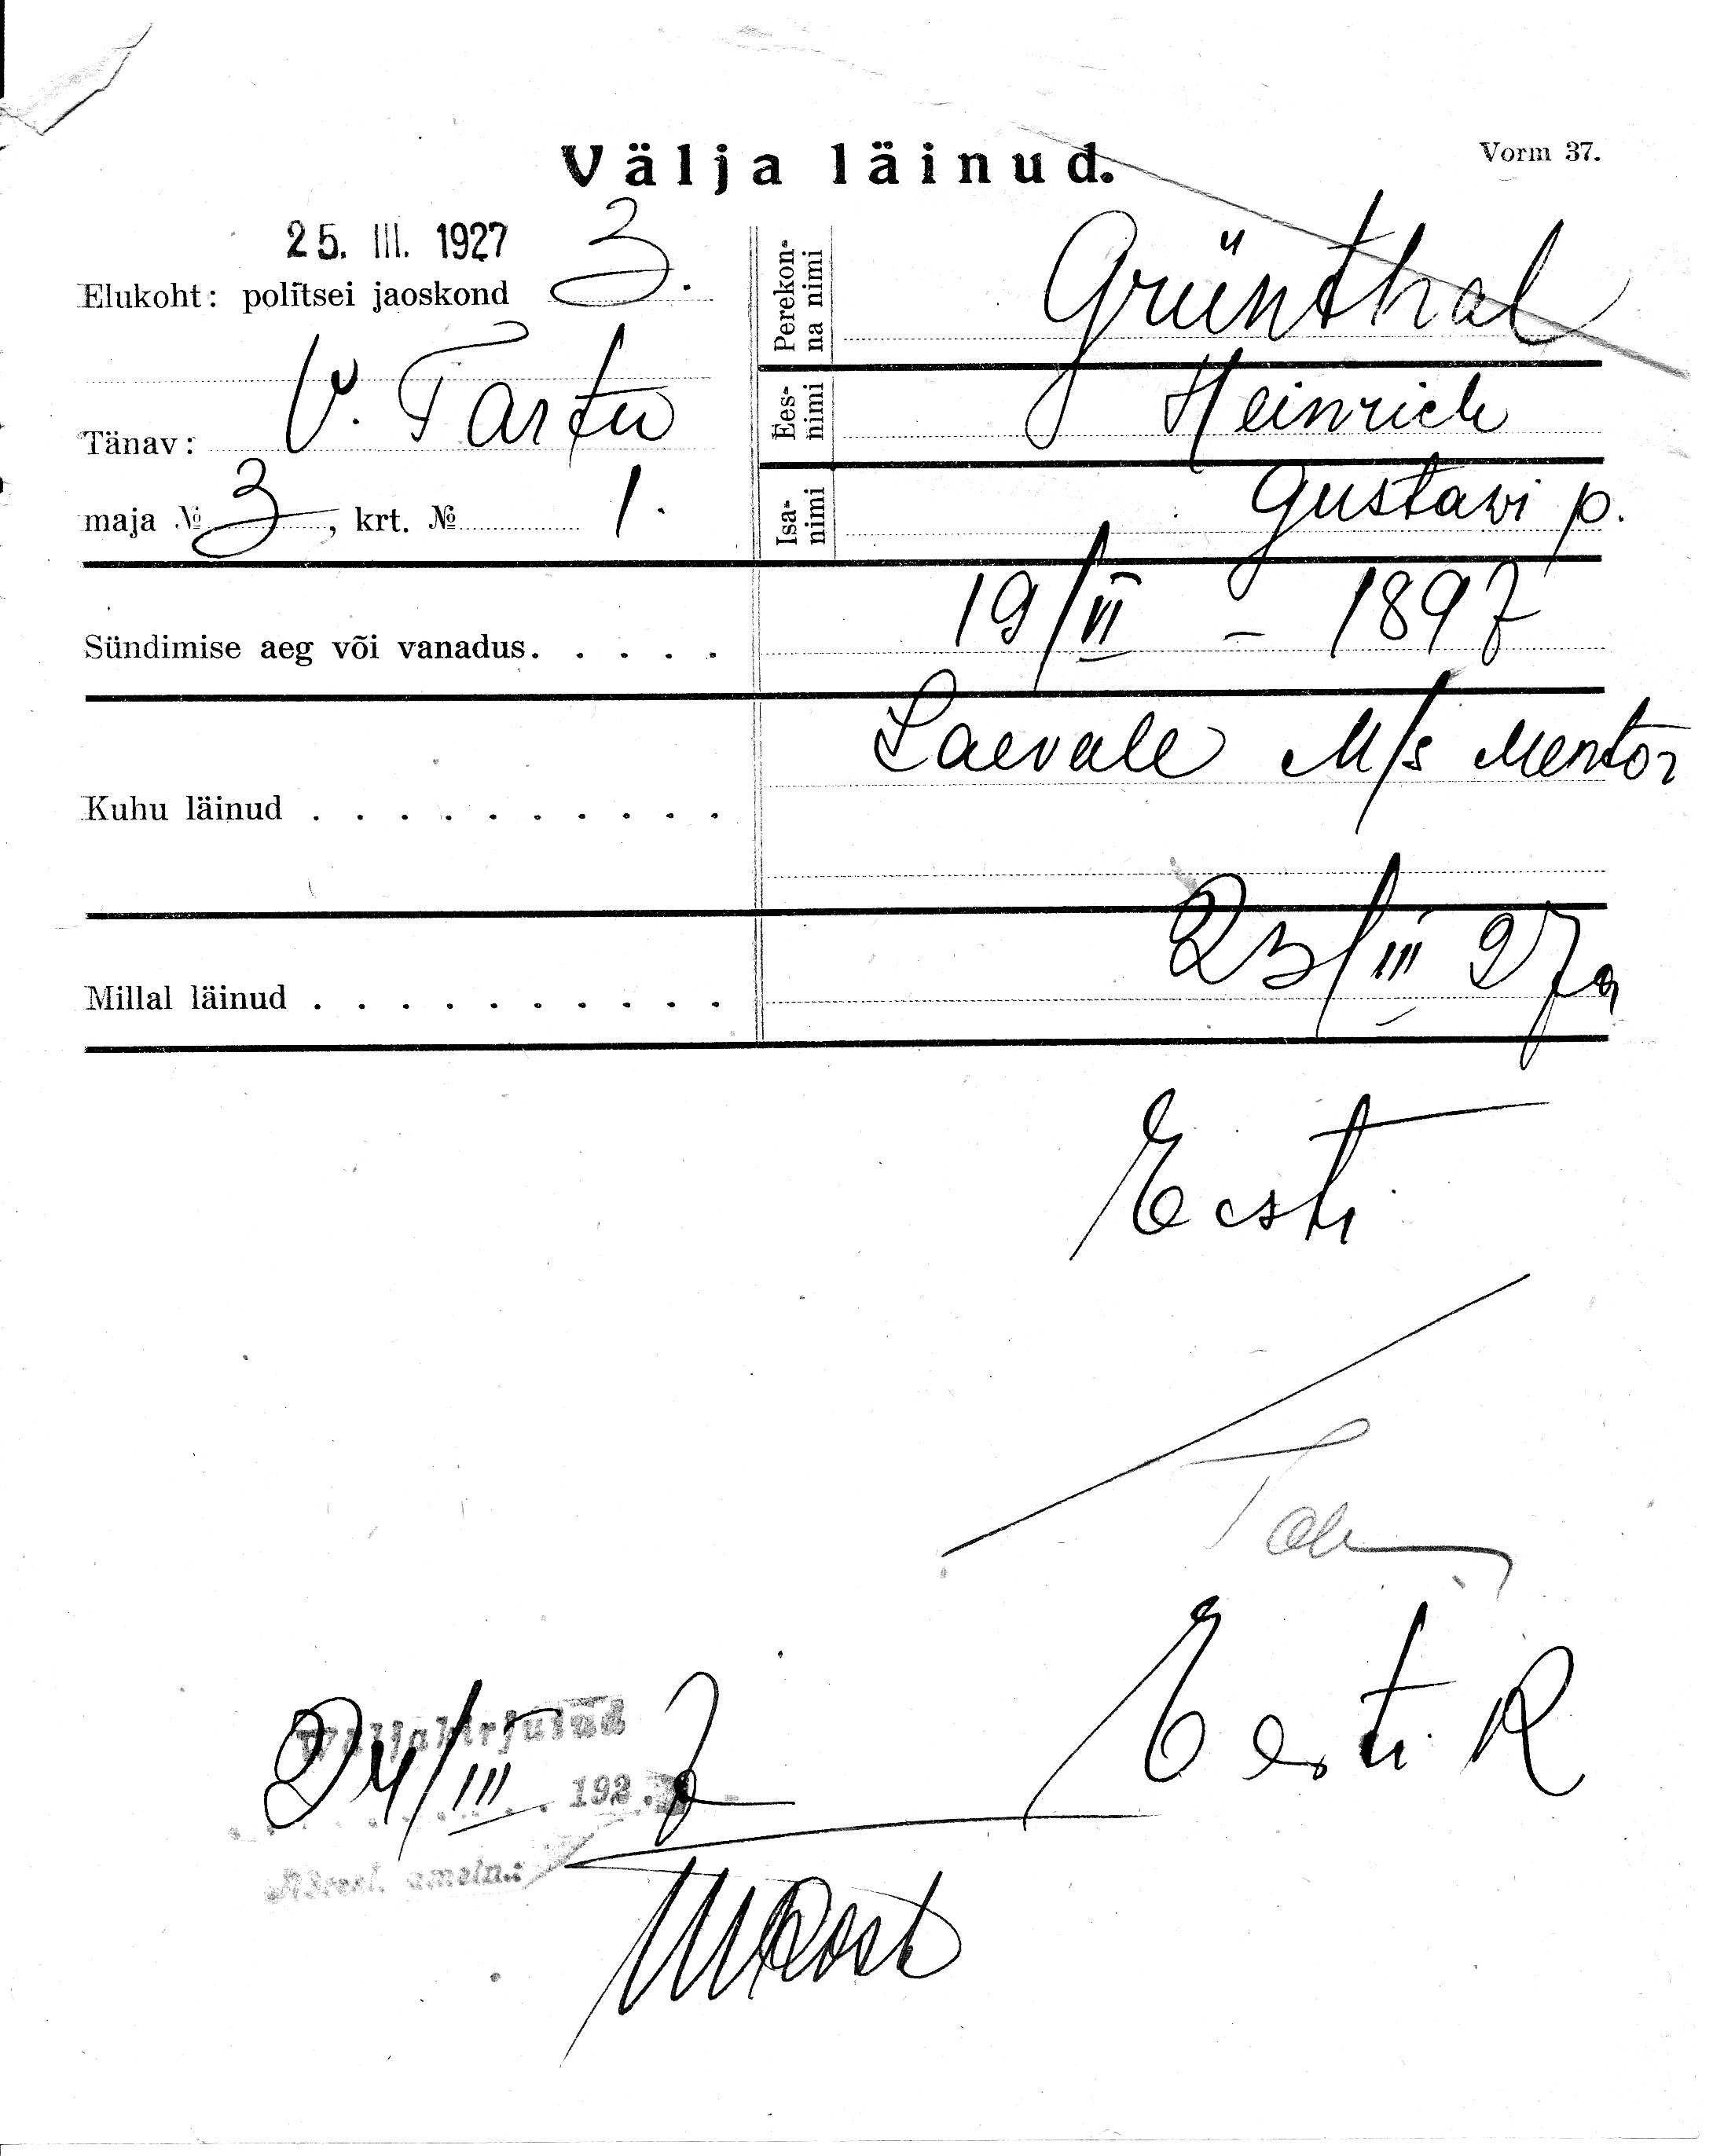 Välja läinud.
Vorm 37.
25. III. 1927
Elukoht: politsei jaoskond 3.
Tänav: V. Tartu
maja № 3, krt. № 1.
Perekon-
na nimi
Grünthal
Ees-
nimi
Heinrich
Isa-
nimi
Gustavi p.
Sündimise aeg või vanadus. . . . . 19/VI – 1897
Kuhu läinud . . . . . . . . . . Laevale M/s Mentor
Millal läinud . . . . . . . . . . 23/III 27a
Eesti
Eesti R
Väljakirjutud
24/III 1927